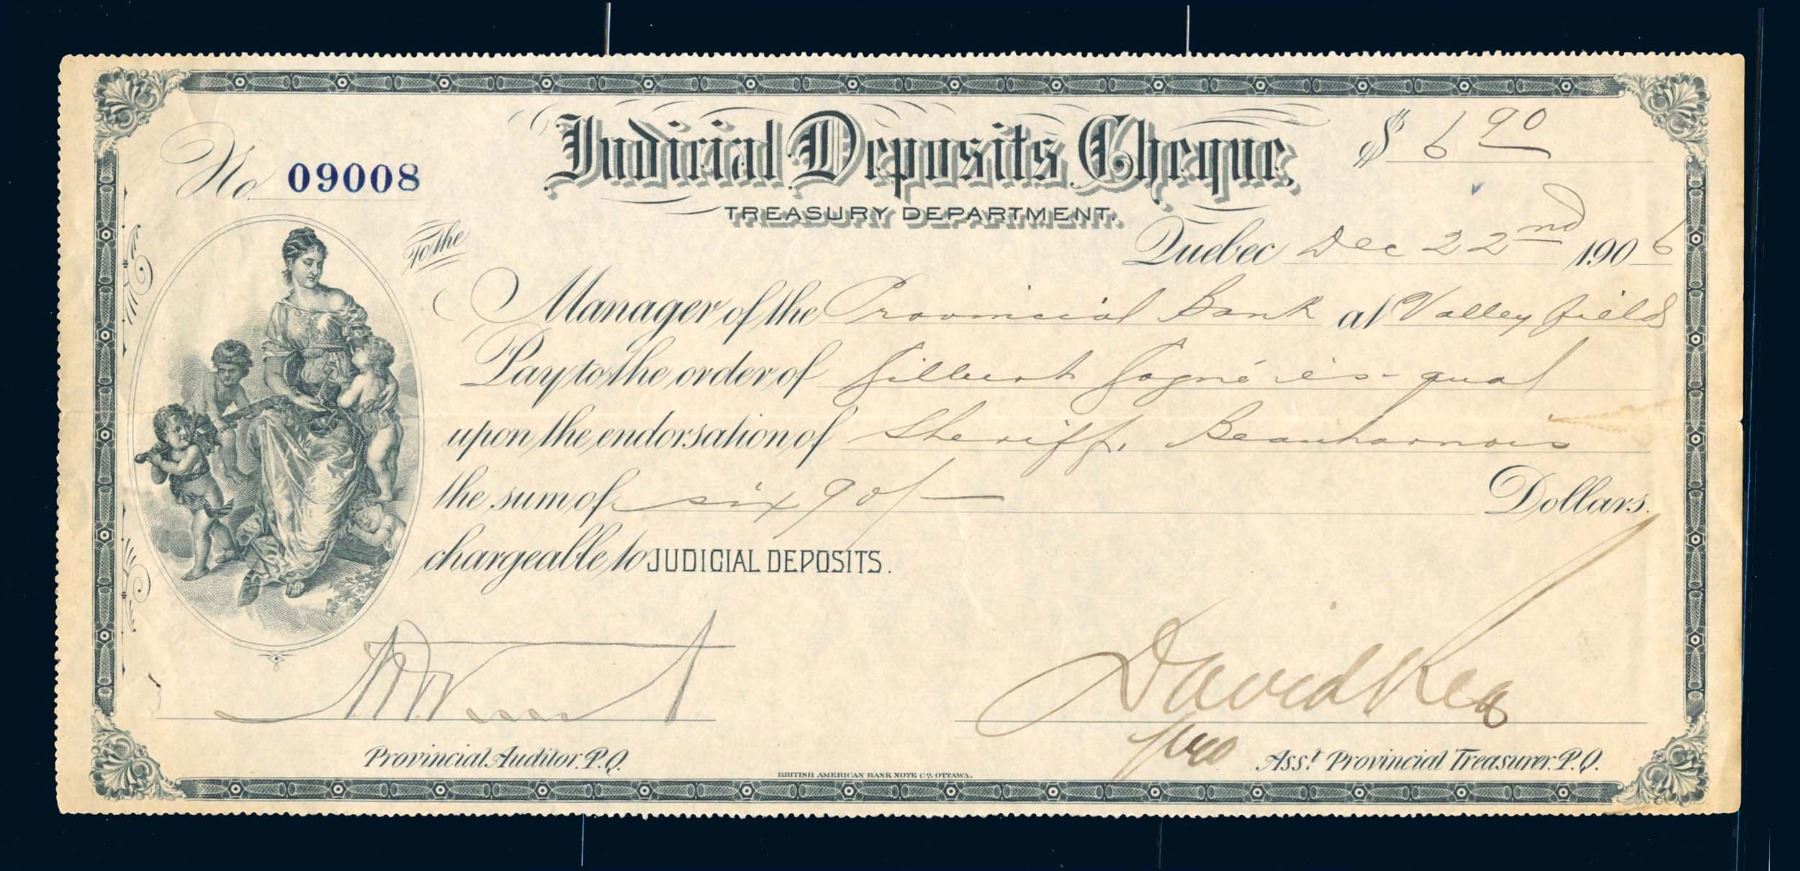 No. 09008
Judicial Deposits Cheque
$ 6 90
TREASURY DEPARTMENT.
Quebec Dec 22nd 1906
To the
Manager of the Provincial Bank at Valleyfield
Pay to the order of Gilbert Gagné és-qual
upon the endorsation of Sheriff, Beauharnois
the sum of six 90/ Dollars.
chargeable to JUDICIAL DEPOSITS.
David Rea
pro
Provincial Auditor. P.Q.
Asst. Provincial Treasurer. P.Q.
BRITISH AMERICAN BANK NOTE CO. OTTAWA.